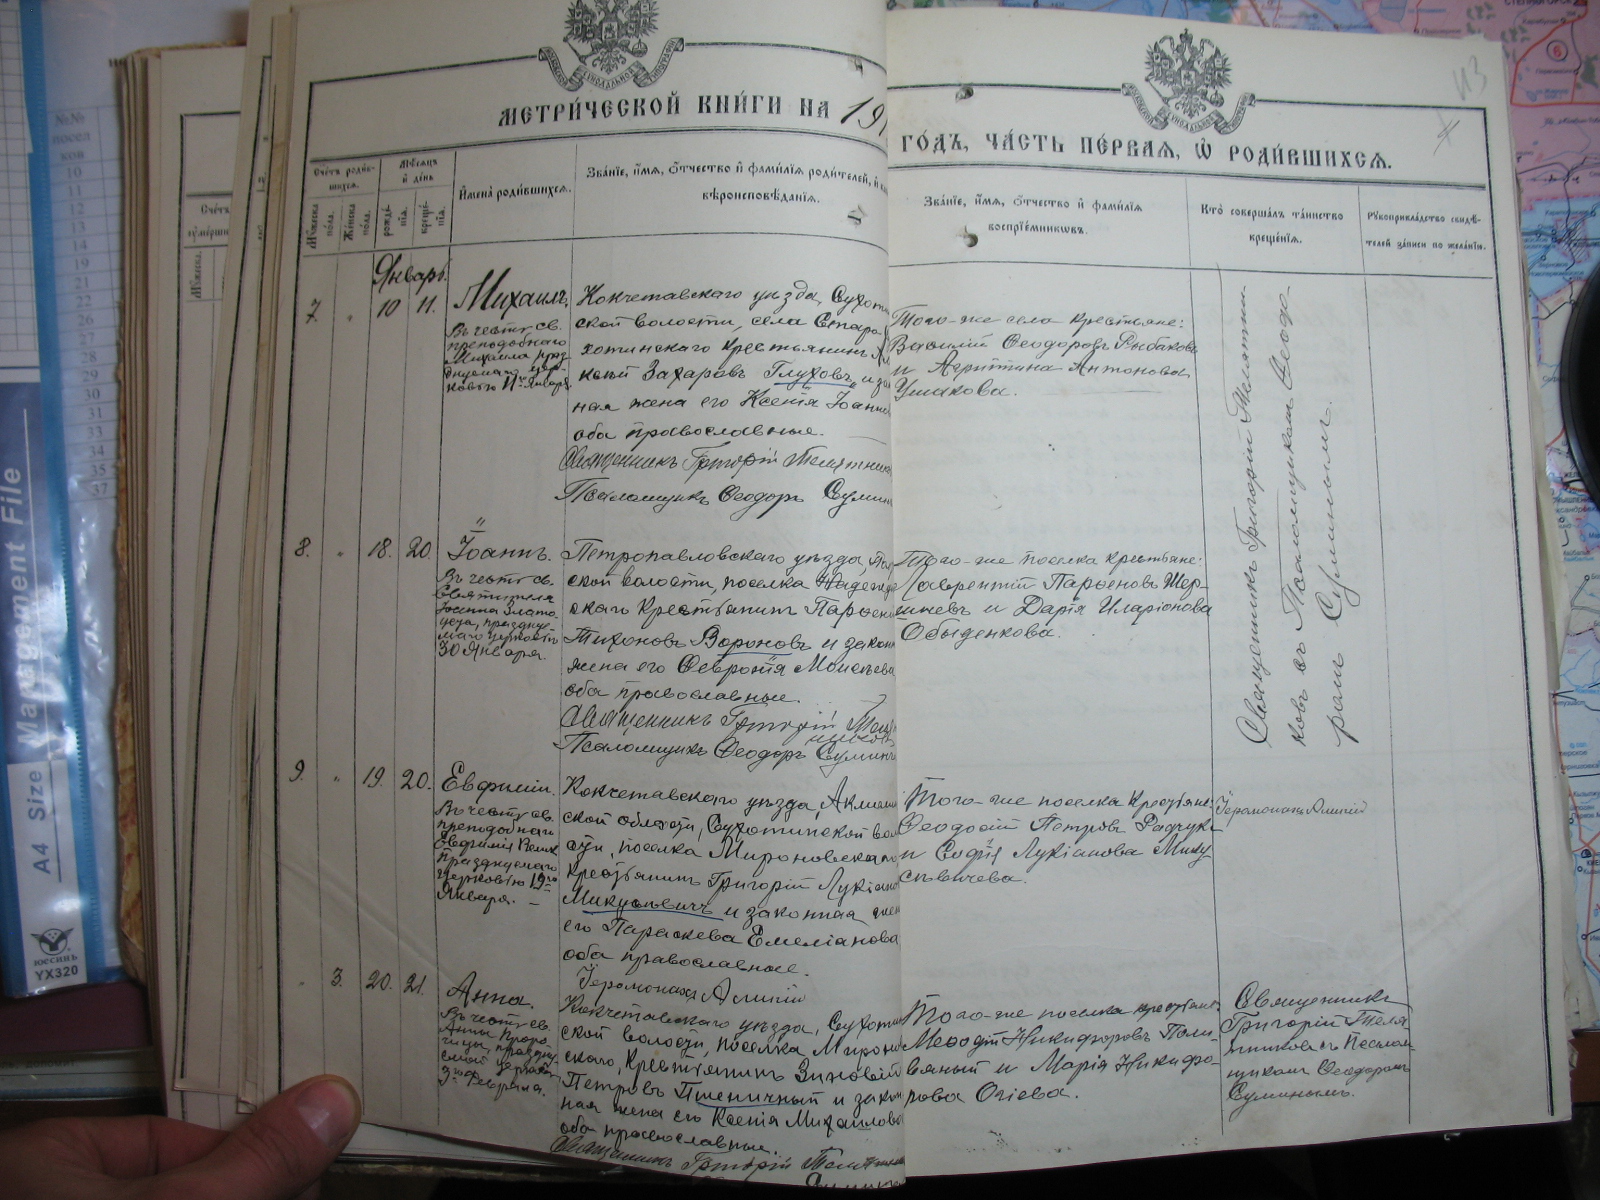 №№
посел
ков
10
11
12
13
14
19
21
22
26
27
28
29
30
31
33
34
35
37
A4 Size Management File
ЮССИНЪ
YX320
МЕТРИ́ЧЕСКОЙ КНИ́ГИ НА 191
ГО́ДЪ, ЧА́СТЬ ПЕ́РВАЯ, Ѡ҆ РОДИ́ВШИХСЯ.
Сче́тъ роди́в-
шихся.
Мѣ́сяцъ
и҆ де́нь
Му́жеска по́ла.
Же́нска по́ла.
рожде́-
нїѧ.
креще́-
нїѧ.
И҆мена̀ роди́вшихся.
Зва́нїе, и҆́мя, о҆́тчество и҆ фами́лїя роди́телей, и҆
вѣроисповѣ́данїя.
Зва́нїе, и҆́мя, о҆́тчество и҆ фами́лїя
воспрїе́мникѡвъ.
Кто̀ соверша́лъ та́инство
креще́нїя.
Рукоприкла́дство свидѣ́-
телей за́писи по жела́нїю.
Январь.
7. " 10 11. Михаилъ.
Въ честь св.
преподобнаго
Михаила праз
днуемаго цер-
ковью 11го Января
Кокчетавскаго уѣзда, Сухотин
ской волости, села Старо-
хотинскаго крестьянинъ
Захаровъ Глуховъ и за
ная жена его Ксенія Іоанно
оба православные.
Священникъ Григорій Телятник
Псаломщикъ Ѳеодоръ Сумин
Того-же села крестьяне:
Василій Ѳеодоровъ Рыбаковъ
и Агриппина Антонова
Ушакова.
Священникъ Григорій Телятни-
ковъ съ Псаломщикомъ Ѳеодо-
ромъ Суминымъ.
8. " 18. 20. Іоаннъ.
Въ честь св.
Святителя
Іоанна Злато
уста, праздну
емаго церковью
30 Января.
Петропавловскаго уѣзда,
ской волости, поселка Надежд
скаго крестьянинъ Парѳен
Тихоновъ Вороновъ и закон
жена его Ѳевронія Моисѣева
оба православные.
Священникъ Григорій Теля
тниковъ
Псаломщикъ Ѳеодоръ Сумин
Того-же поселка крестьяне:
Лаврентій Парѳеновъ Шер-
шневъ и Дарія Иларіонова
Обыденкова.
9. " 19. 20. Евфимій.
Въ честь св.
преподобнаго
Евфимія Велик
празднуемаго
церковью 19го
Января.
Кокчетавскаго уѣзда, Акмолин
ской области, Сухотинской вол
сти, поселка Мироновскаго,
крестьянинъ Григорій Лукіано
Микусьвичъ и законная жен
его Параскева Емеліанова
оба православные.
Іеромонахъ Алипій
Того-же поселка крестьяне:
Ѳеодосій Петровъ Радчук
и Софія Лукіанова Мику
севичева.
Іеромонахъ Алипій
" 3. 20. 21. Анна.
Въ честь св.
Анны Проро
чицы, праздну
емой церков
3го Февраля.
Кокчетавскаго уѣзда, Сухотин
ской волости, поселка Мироно
скаго, крестьянинъ Зиновій
Петровъ Пшеничный и зако
ная жена его Ксенія Михайлова
оба православные.
Священникъ Григорій Телятник
Того-же поселка крестьяне:
Меѳодій Никифоровъ Поли-
вяный и Марія Никифо-
рова Огіева.
Священникъ
Григорій Теля
тниковъ съ Псалом
щикомъ Ѳеодоромъ
Суминымъ.